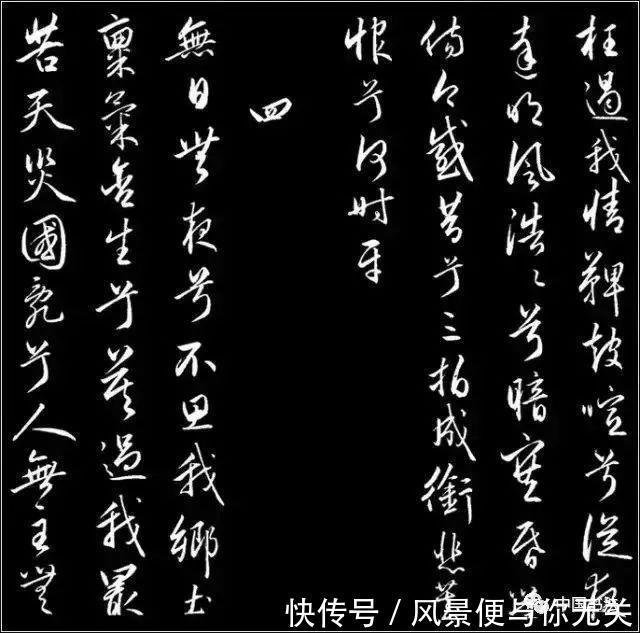 枉遏我情鞞鼓喧兮從夜
達明風浩〻兮暗塞昏營
傷今感昔兮三拍成銜悲畜
恨兮何時平
四
無日無夜兮不思我鄉土
稟氣含生兮莫過我最
苦天災國亂兮人無主
快传号 / 风景便与你无关